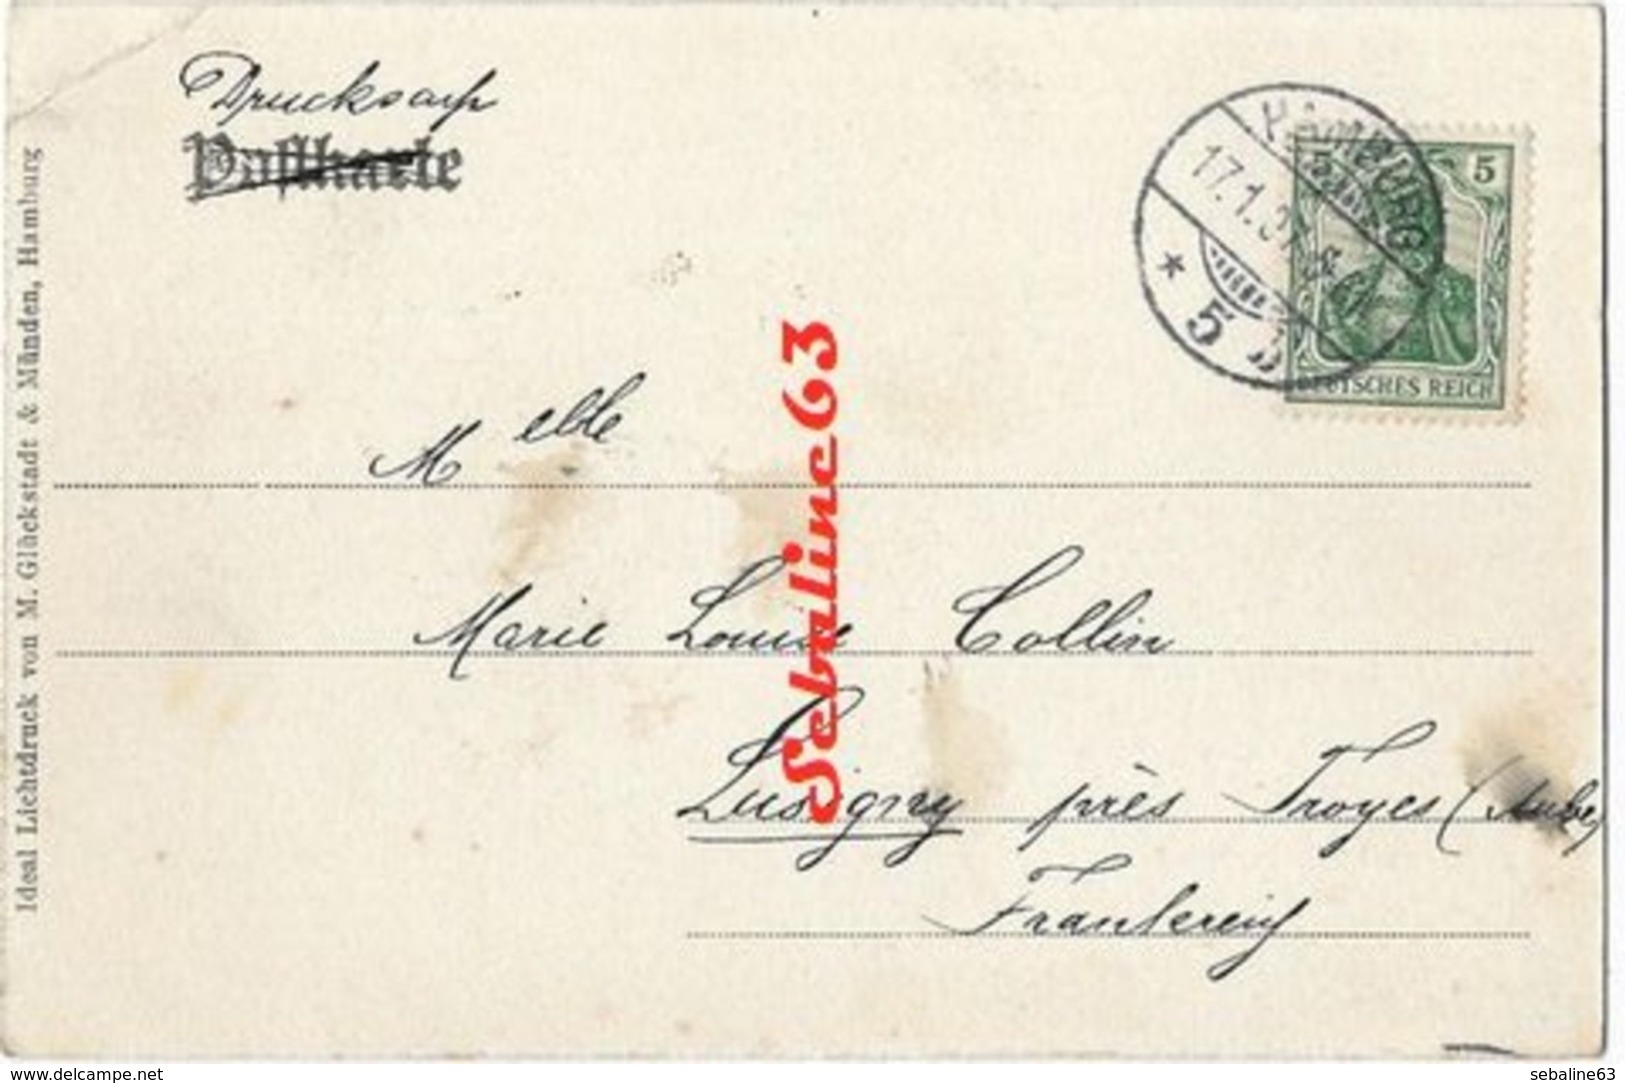 Drucksach
Postkarte
HAMBURG
17.1.07.
* 5
5 5
DEUTSCHES REICH
Melle
Marie Louise Collin
Lusigny près Troyes (Aube)
Frankreich
Ideal Lichtdruck von M. Glückstadt & Münden, Hamburg
Sebaline63
www.delcampe.net
sebaline63